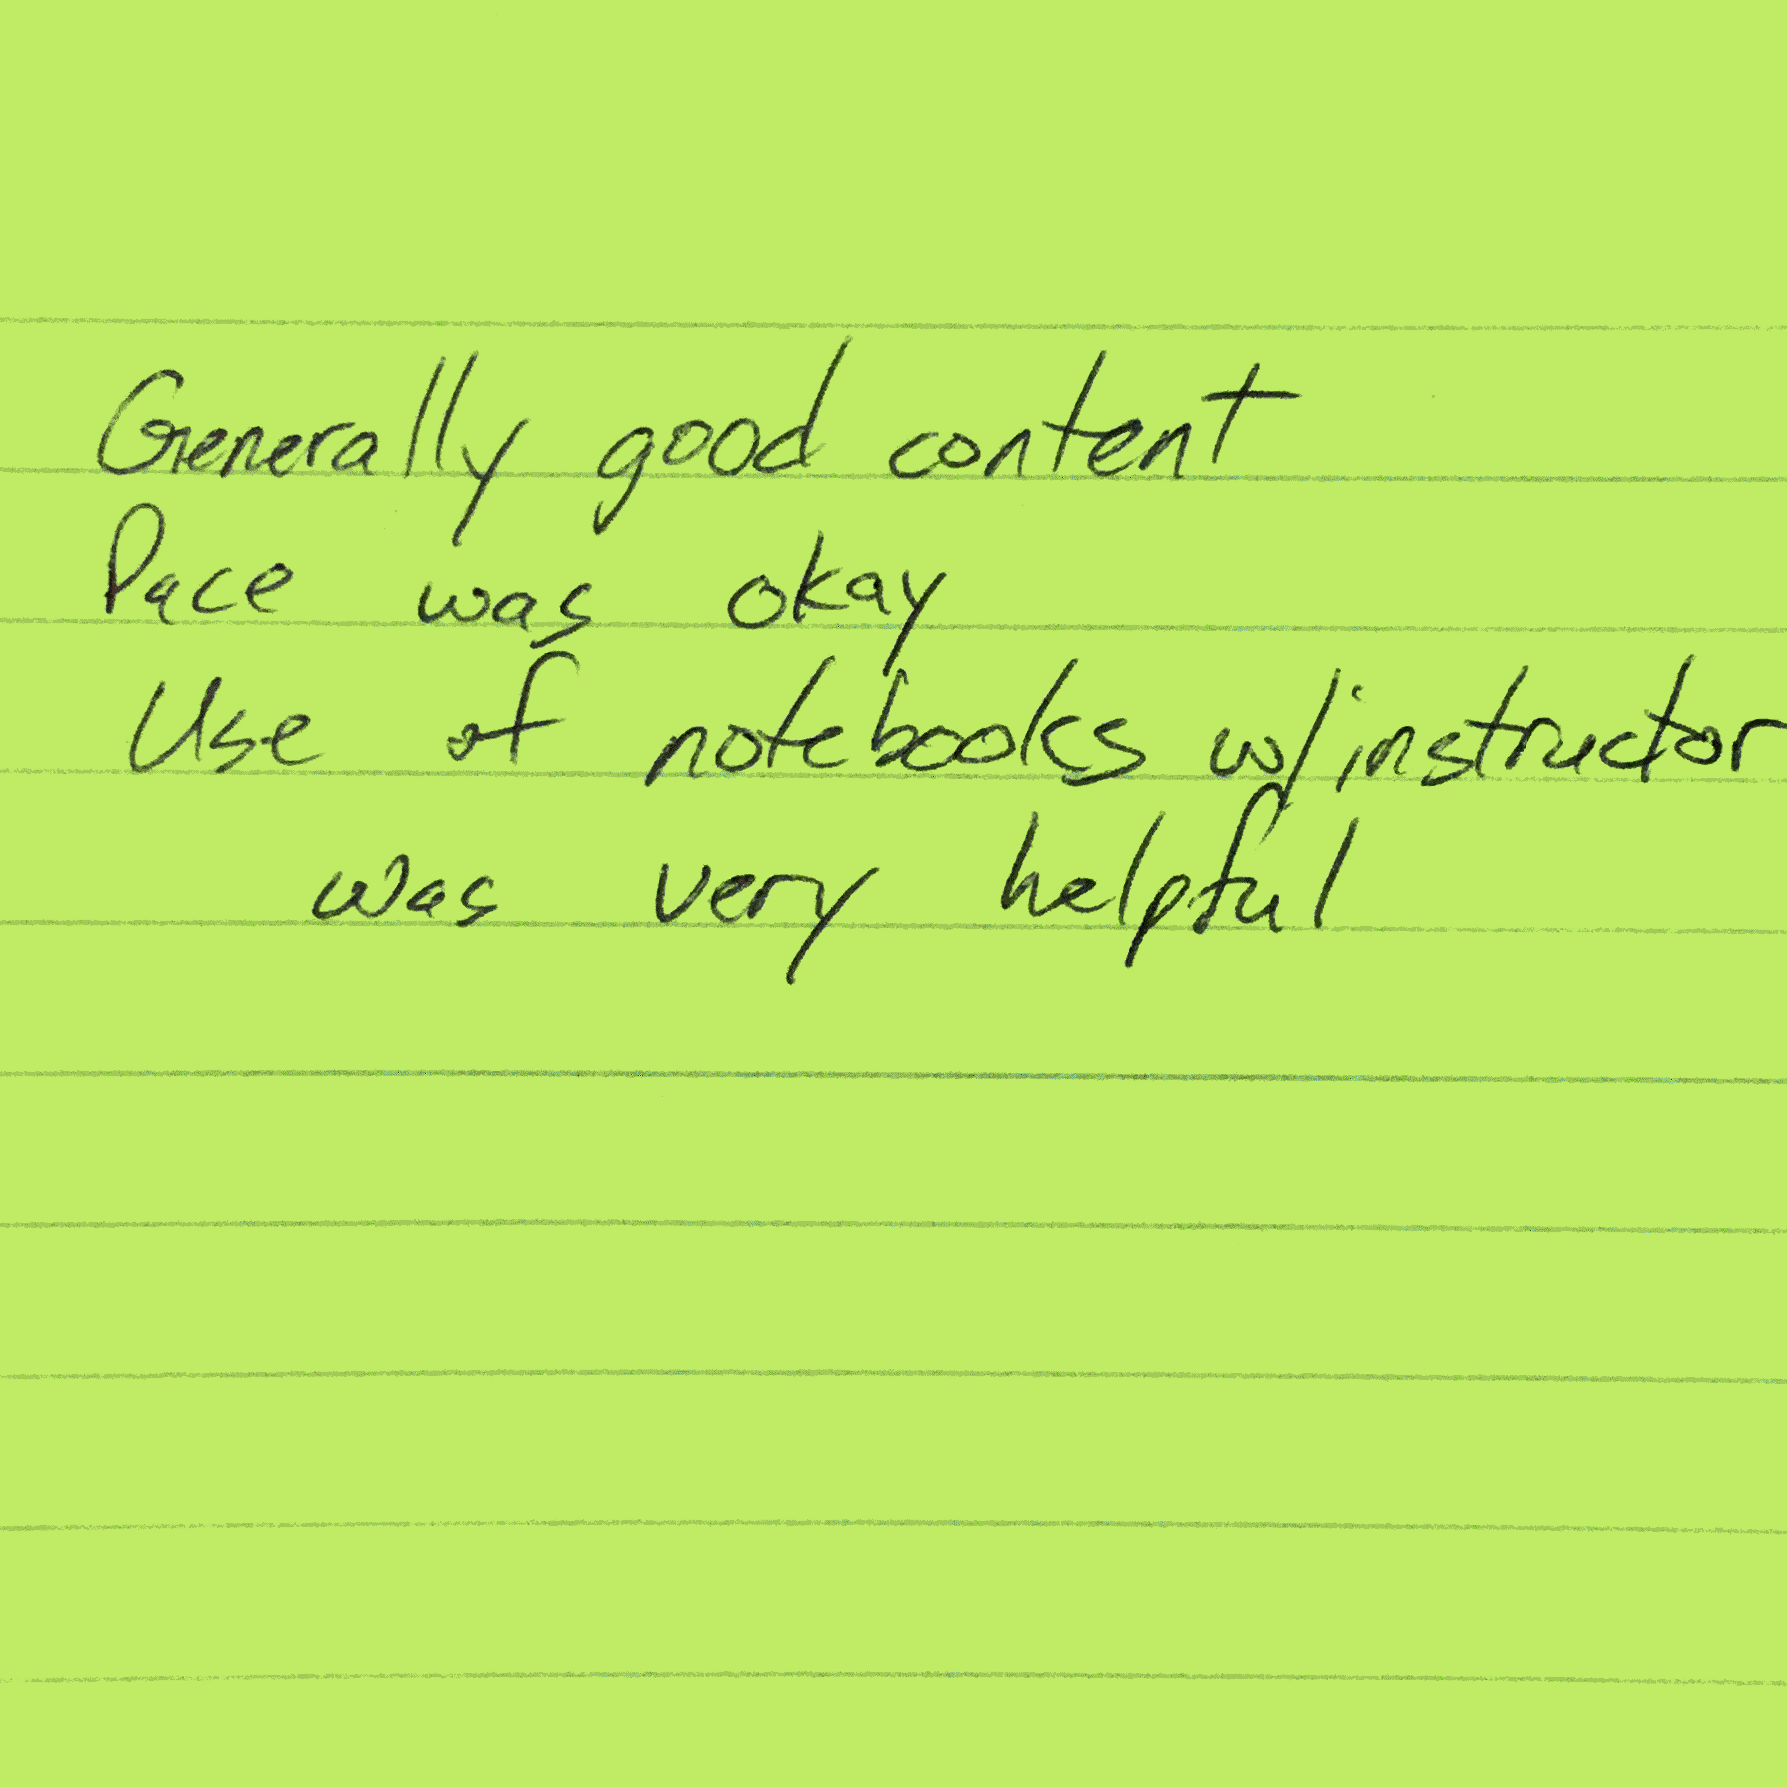 Generally good content
Pace was okay
Use of notebooks w/instructor
was very helpful